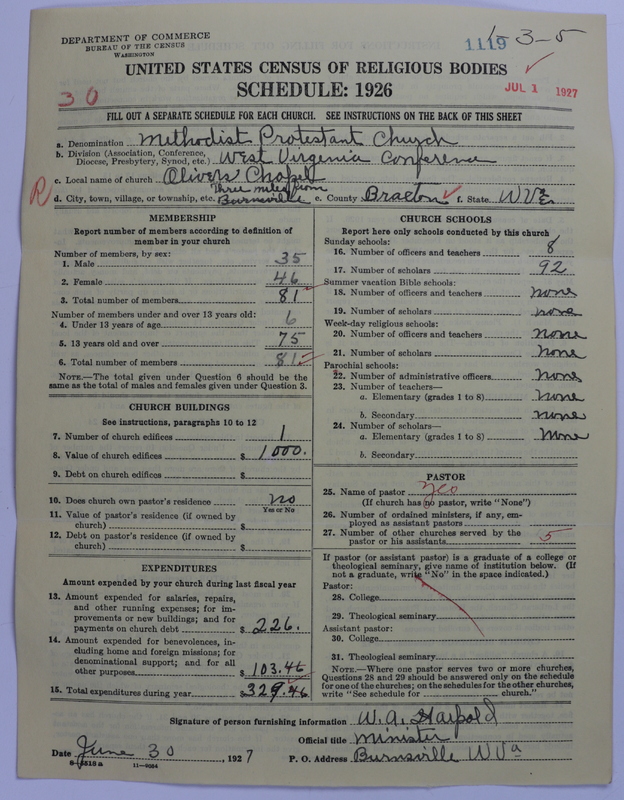 DEPARTMENT OF COMMERCE
BUREAU OF THE CENSUS
WASHINGTON
1119 13-5
UNITED STATES CENSUS OF RELIGIOUS BODIES
SCHEDULE: 1926
JUL 1 1927
30
FILL OUT A SEPARATE SCHEDULE FOR EACH CHURCH. SEE INSTRUCTIONS ON THE BACK OF THIS SHEET
a. Denomination Methodist Protestant Church
b. Division (Association, Conference, Diocese, Presbytery, Synod, etc.) West Virgenia Conference
c. Local name of church Olivers Chapel
R
d. City, town, village, or township, etc. Three miles from Burnsville e. County Braxton f. State W Va
MEMBERSHIP
Report number of members according to definition of
member in your church
Number of members, by sex:
1. Male 35
2. Female 46
3. Total number of members 81
Number of members under and over 13 years old:
4. Under 13 years of age 6
5. 13 years old and over 75
6. Total number of members 81
NOTE.—The total given under Question 6 should be the
same as the total of males and females given under Question 3.
CHURCH BUILDINGS
See instructions, paragraphs 10 to 12
7. Number of church edifices 1
8. Value of church edifices $ 1000.
9. Debt on church edifices $
10. Does church own pastor's residence No
Yes or No
11. Value of pastor's residence (if owned by
church) $
12. Debt on pastor's residence (if owned by
church) $
EXPENDITURES
Amount expended by your church during last fiscal year
13. Amount expended for salaries, repairs,
and other running expenses; for im-
provements or new buildings; and for
payments on church debt $ 226.
14. Amount expended for benevolences, in-
cluding home and foreign missions; for
denominational support; and for all
other purposes $ 103.46
15. Total expenditures during year $ 329.46
CHURCH SCHOOLS
Report here only schools conducted by this church
Sunday schools:
16. Number of officers and teachers 8
17. Number of scholars 92
Summer vacation Bible schools:
18. Number of officers and teachers none
19. Number of scholars none
Week-day religious schools:
20. Number of officers and teachers none
21. Number of scholars none
Parochial schools:
22. Number of administrative officers none
23. Number of teachers—
a. Elementary (grades 1 to 8) none
b. Secondary none
24. Number of scholars—
a. Elementary (grades 1 to 8) none
b. Secondary
PASTOR
25. Name of pastor
(If church has no pastor, write "None")
26. Number of ordained ministers, if any, em-
ployed as assistant pastors
27. Number of other churches served by the
pastor or his assistants 5
If pastor (or assistant pastor) is a graduate of a college or
theological seminary, give name of institution below. (If
not a graduate, write "No" in the space indicated.)
Pastor:
28. College
29. Theological seminary
Assistant pastor:
30. College
31. Theological seminary
NOTE.—Where one pastor serves two or more churches,
Questions 28 and 29 should be answered only on the schedule
for one of the churches; on the schedules for the other churches,
write "See schedule for church."
Signature of person furnishing information W. A. Harpold
Official title Minister
Date June 30, 1927 P. O. Address Burnsville W Va
8-5518 a 11-9584